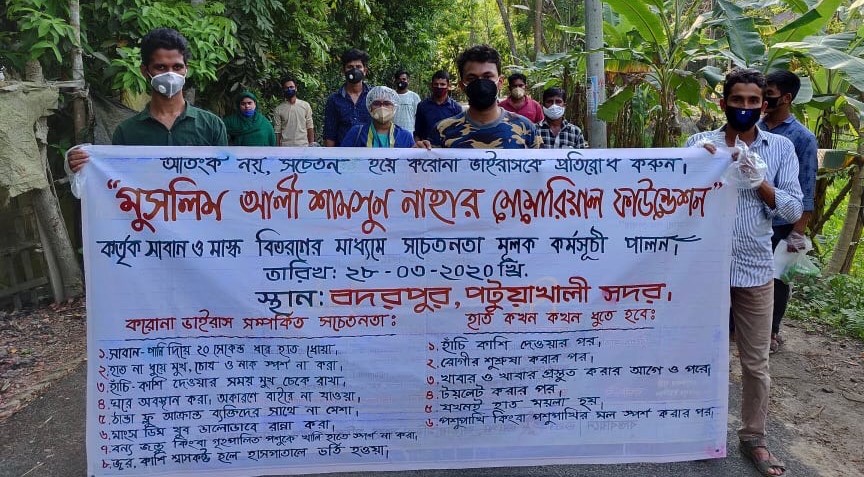 আতংক নয়, সচেতন হয়ে করোনা ভাইরাসকে প্রতিরোধ করুন।
"মুসলিম আলী শামসুন নাহার মেমোরিয়াল ফাউন্ডেশন"
কর্তৃক সাবান ও মাস্ক বিতরণের মাধ্যমে সচেতনতা মূলক কর্মসূচী পালন।
তারিখ: ২৮-০৩-২০২০ খ্রি.
স্থান: বদরপুর, পটুয়াখালী সদর।
করোনা ভাইরাস সম্পর্কিত সচেতনতাঃ
১. সাবান-পানি দিয়ে ২০ সেকেন্ড ধরে হাত ধোয়া।
২. হাত না ধুয়ে মুখ, চোখ ও নাক স্পর্শ না করা।
৩. হাঁচি-কাশি দেওয়ার সময় মুখ ঢেকে রাখা।
৪. ঘরে অবস্থান করা, অকারণে বাইরে না যাওয়া।
৫. ঠান্ডা ফ্লু আক্রান্ত ব্যক্তিদের সাথে না মেশা।
৬. মাংস ডিম খুব ভালোভাবে রান্না করা।
৭. বন্য জন্তু কিংবা গৃহপালিত পশুকে খালি হাতে স্পর্শ না করা।
৮. জ্বর, কাশি শ্বাসকষ্ট হলে হাসপাতালে ভর্তি হওয়া।
হাত কখন কখন ধুতে হবেঃ
১. হাঁচি কাশি দেওয়ার পর।
২. রোগীর শুশ্রূষা করার পর।
৩. খাবার ও খাবার প্রস্তুত করার আগে ও পরে।
৪. টয়লেট করার পর।
৫. যখনই হাত ময়লা হয়।
৬. পশুপাখি কিংবা পশুপাখির মল স্পর্শ করার পর।